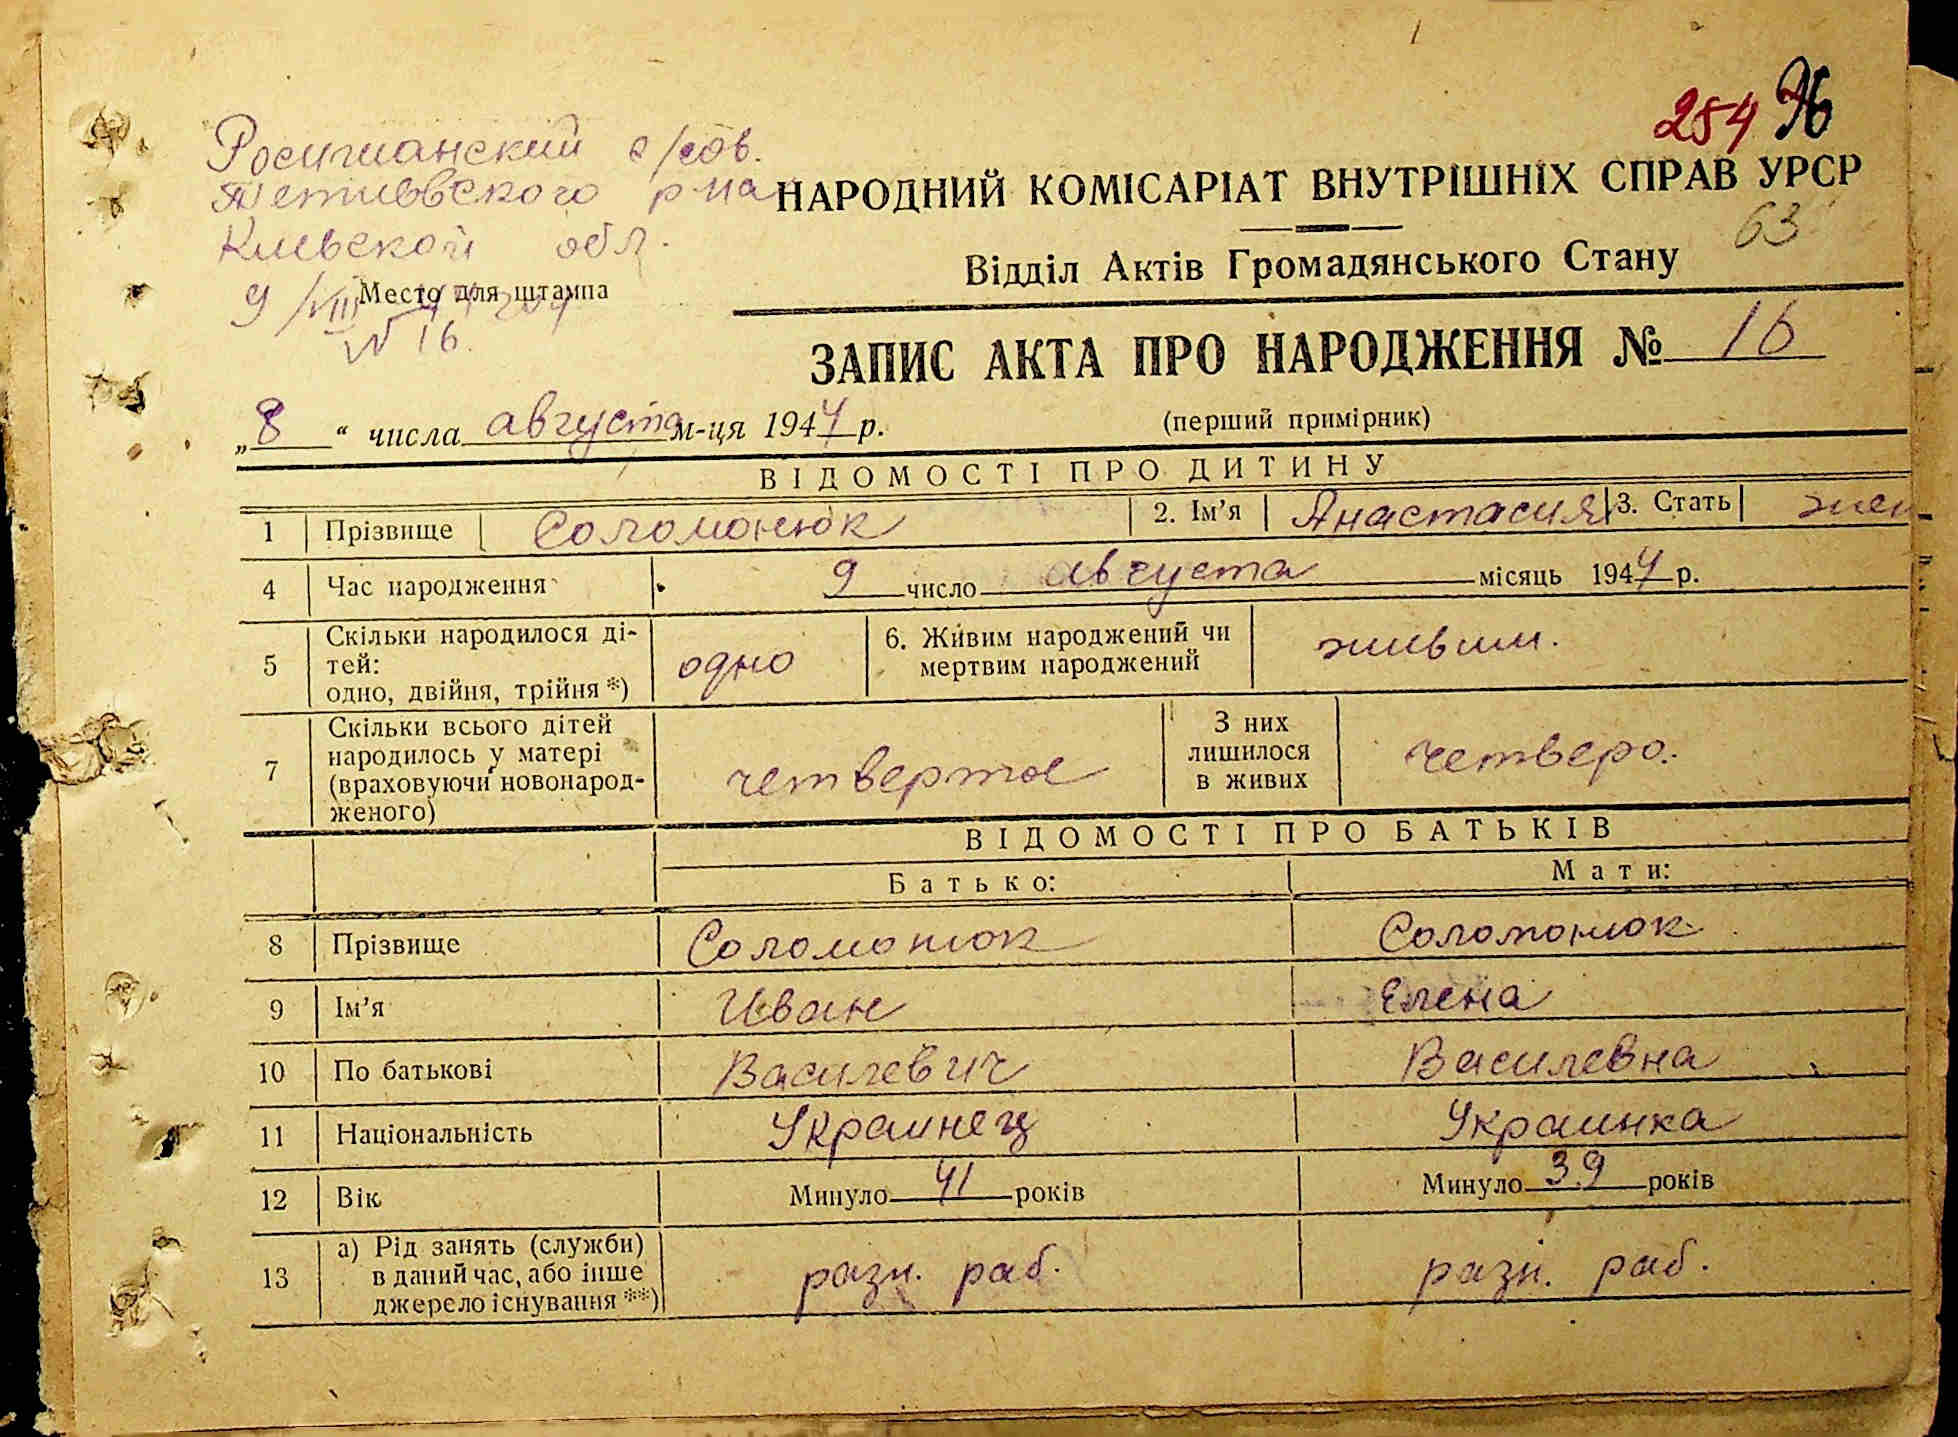 254 96
Росишанский с/сов.
Тетиевского р-на
Киевской обл.
НАРОДНИЙ КОМІСАРІАТ ВНУТРІШНІХ СПРАВ УРСР
63
Відділ Актів Громадянського Стану
Место для штампа
9/VIII
№ 16
ЗАПИС АКТА ПРО НАРОДЖЕННЯ № 16
„8“ числа августа м-ця 1944 р.
(перший примірник)
ВІДОМОСТІ ПРО ДИТИНУ
1 Прізвище Соломонюк 2. Ім’я Анастасия 3. Стать жен
4 Час народження 9 число августа місяць 1944 р.
5 Скільки народилося ді-
тей:
одно, двійня, трійня *) одно 6. Живим народжений чи
мертвим народжений живым.
7 Скільки всього дітей
народилось у матері
(враховуючи новонарод-
женого) четвертое З них
лишилося
в живих четверо.
ВІДОМОСТІ ПРО БАТЬКІВ
Батько: Мати:
8 Прізвище Соломонюк Соломонюк
9 Ім’я Иван Елена
10 По батькові Василевич Василевна
11 Національність Украинец Украинка
12 Вік Минуло 41 років Минуло 39 років
13 а) Рід занять (служби)
в даний час, або інше
джерело існування **) разн. раб. разн. раб.